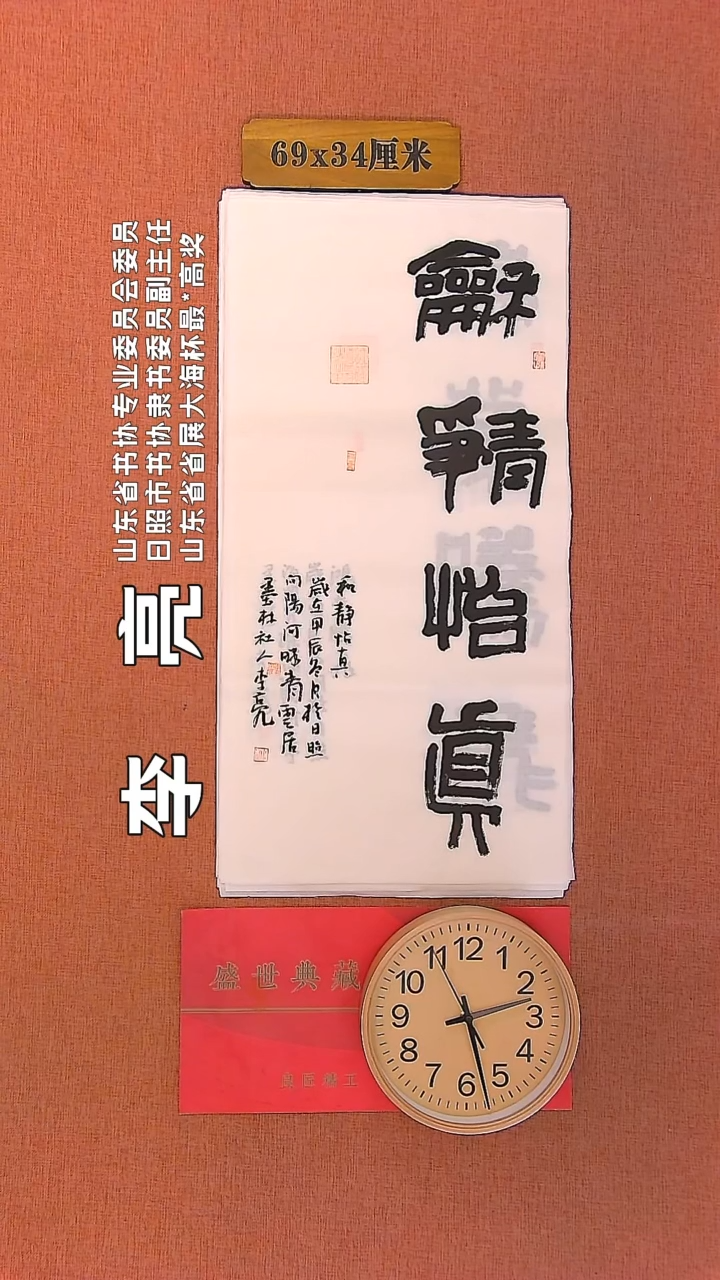 69x34厘米
龢靜怡眞
和静怡真
歲在甲辰冬月於日照
向陽河畔青雲居
墨林社人李亮
李亮
山东省书协专业委员会委员
日照市书协隶书委员副主任
山东省省展大海杯最*高奖
盛世典藏
12
1
2
3
4
5
6
7
8
9
10
11